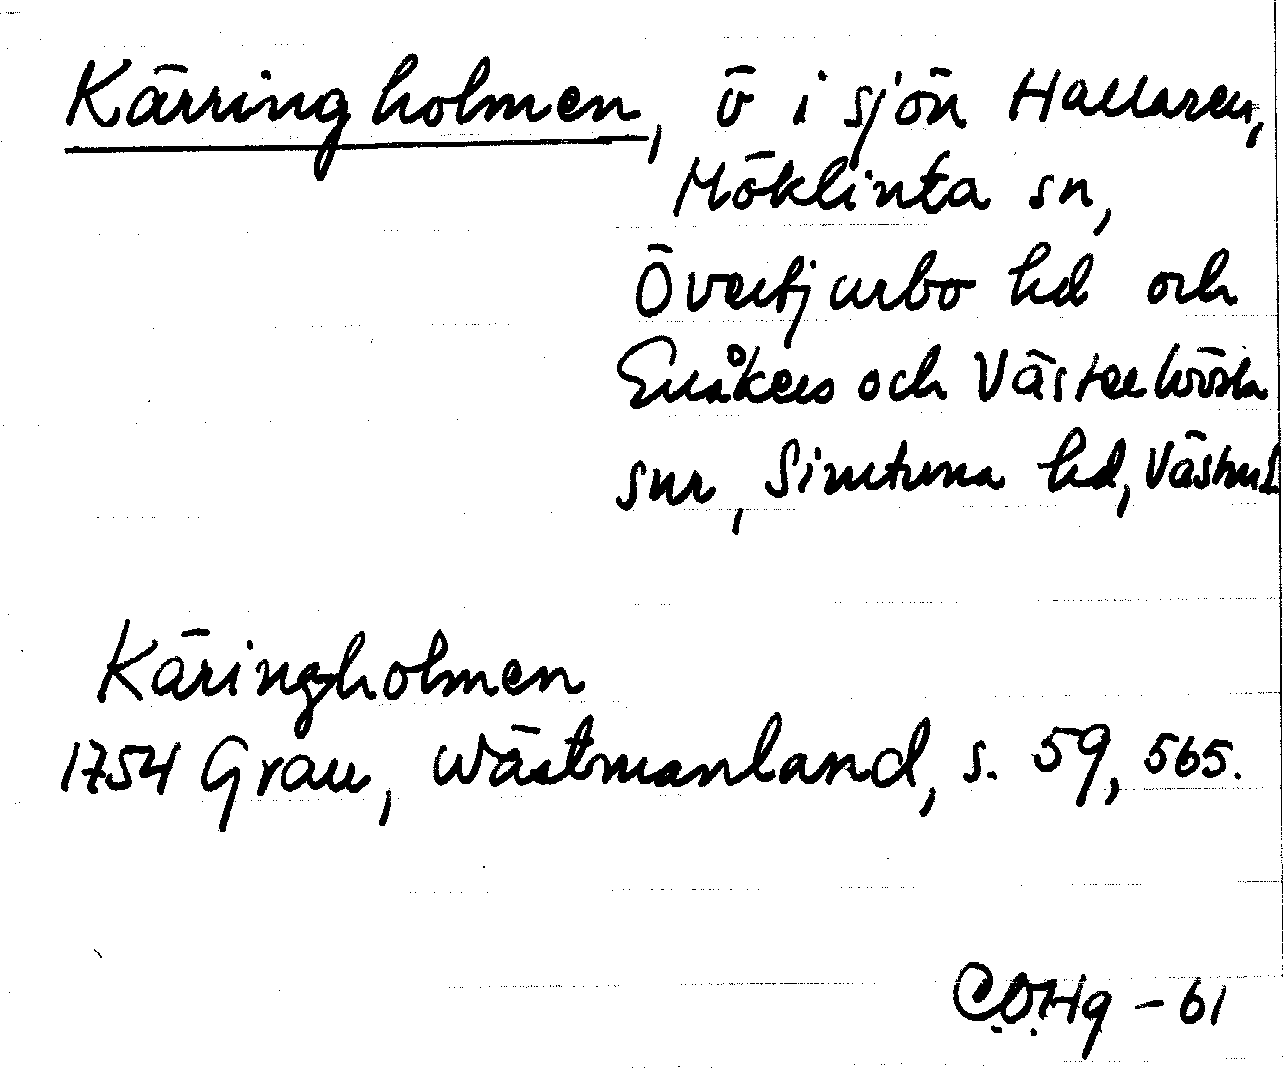 Kärringholmen, ö i sjön Hallaren,
Möklinta sn,
Övertjurbo hd och
Enåkers och Västerlövsta
snr, Simtuna hd, Västml.
Käringholmen
1754 Grau, Wästmanland, s. 59, 565.
C.O.Hg - 61